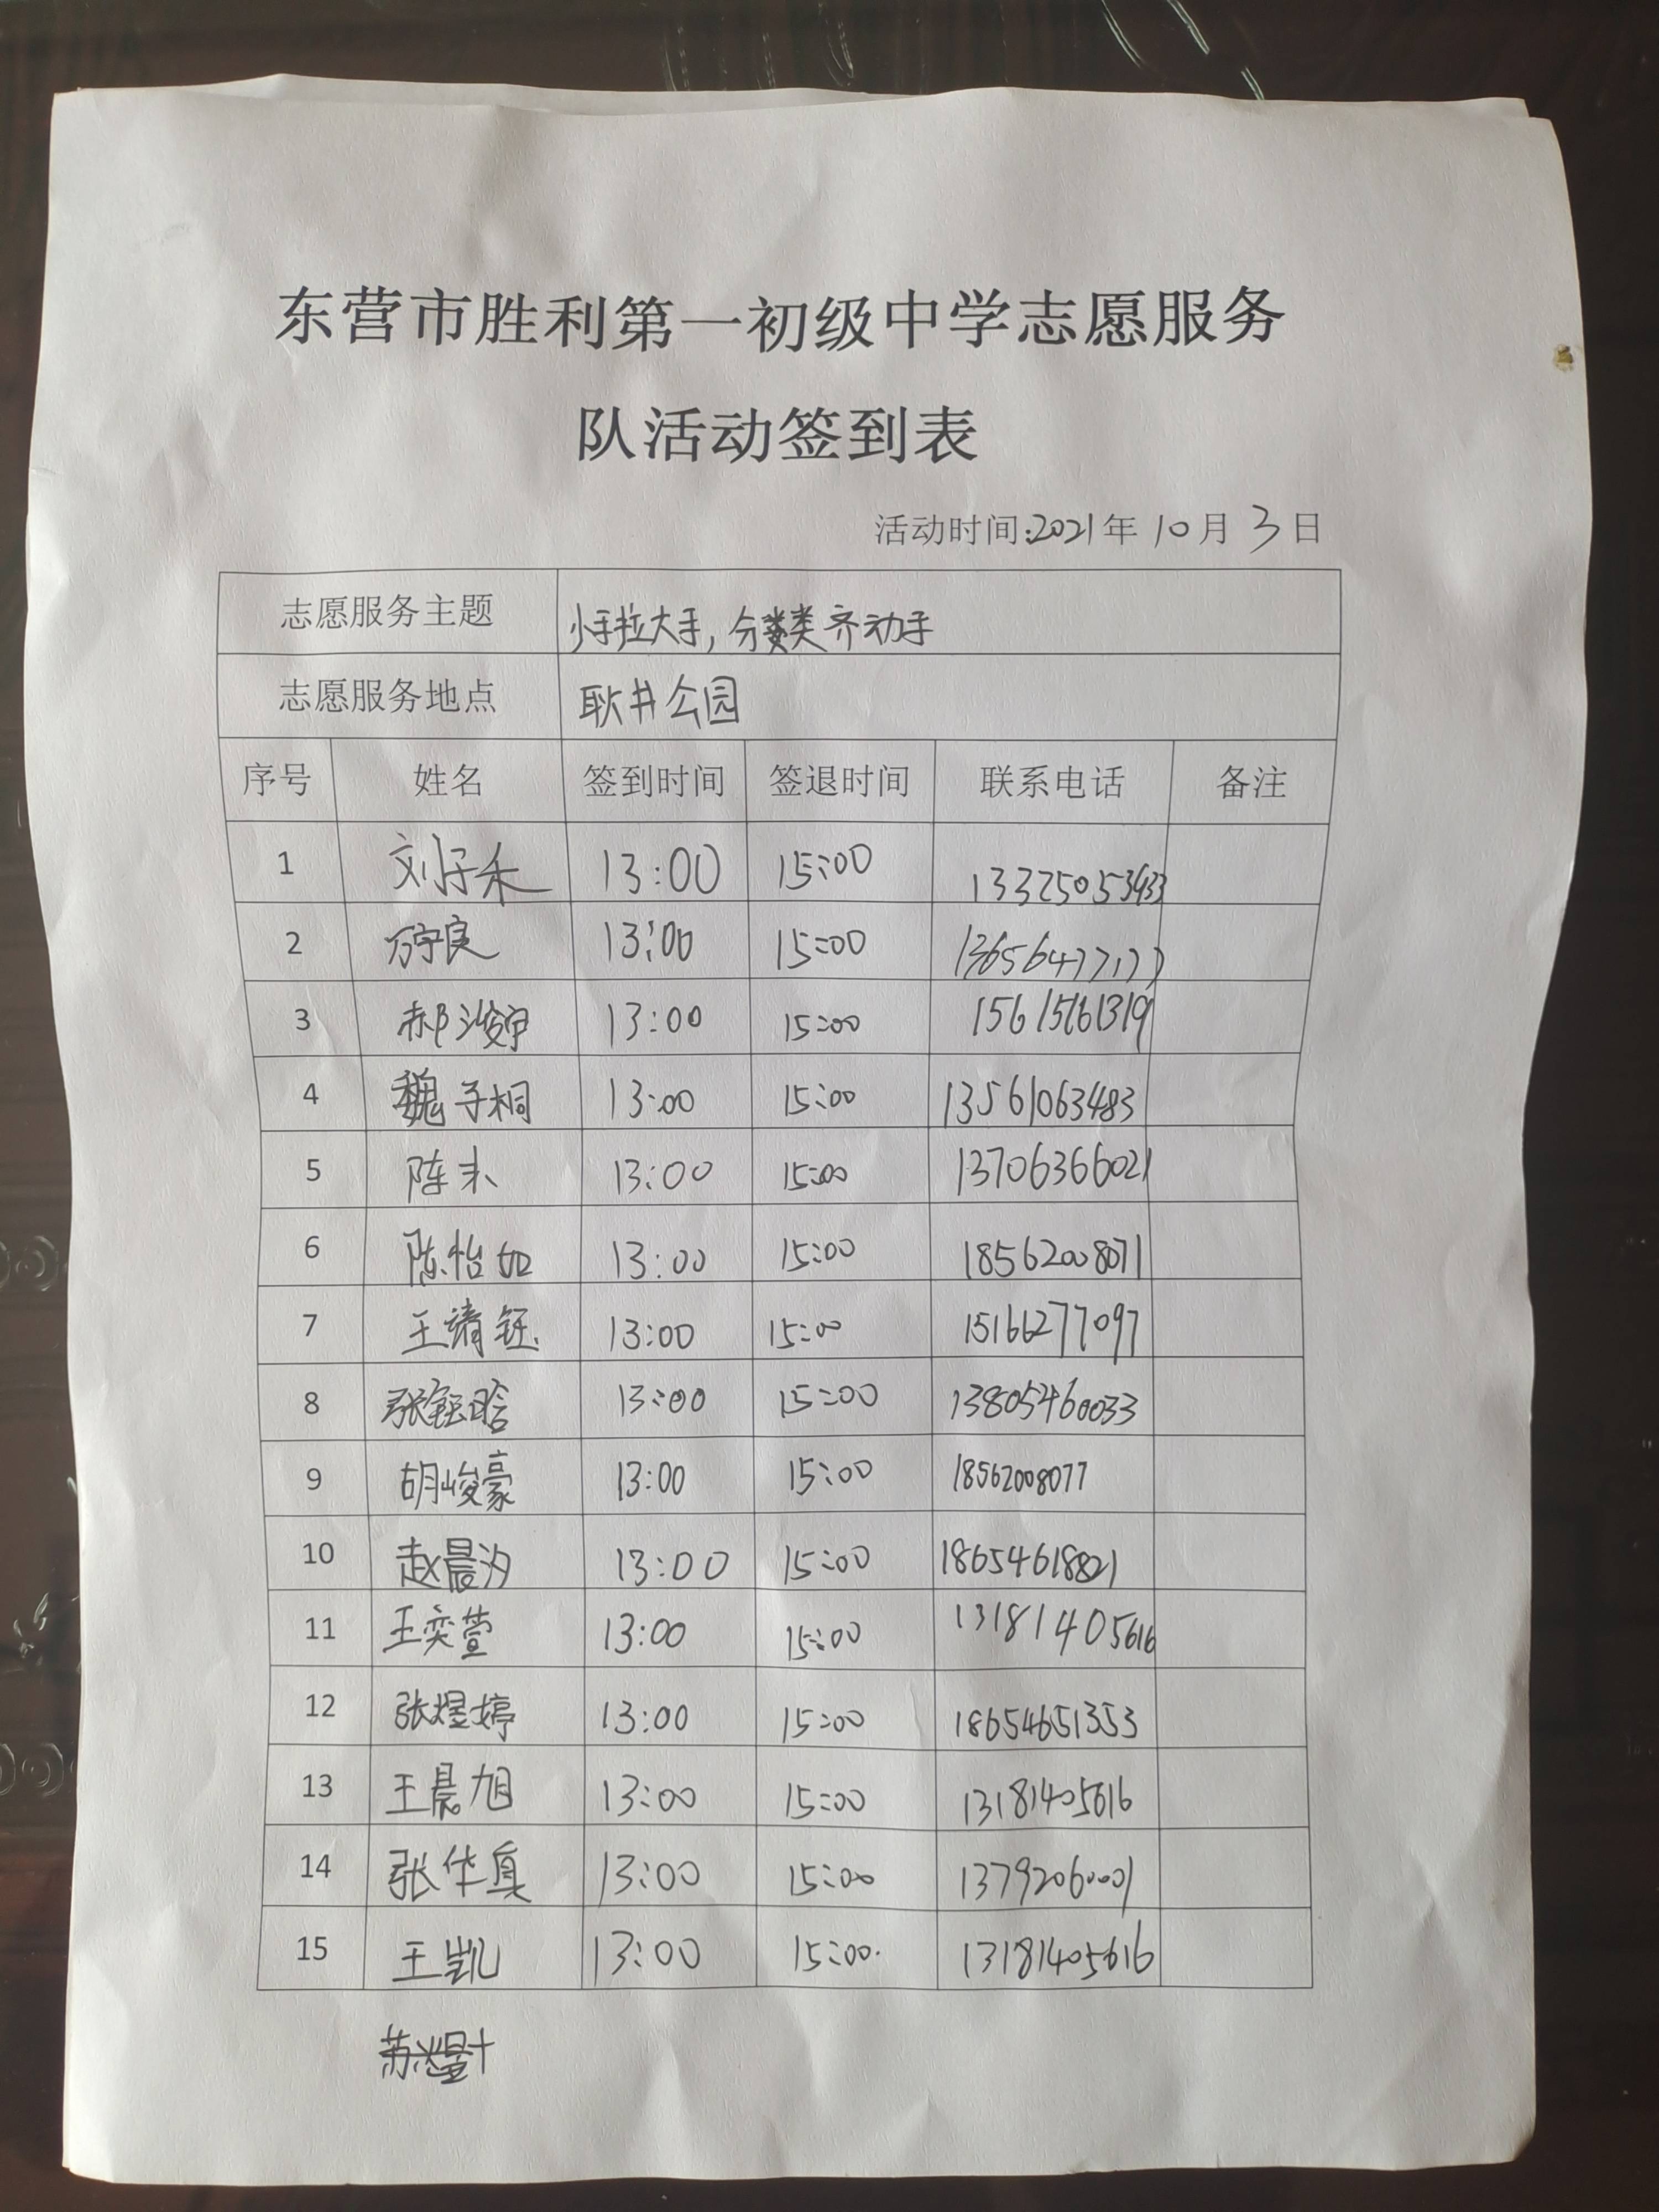 东营市胜利第一初级中学志愿服务
队活动签到表
活动时间:2021年10月3日
志愿服务主题 小手拉大手,分类齐动手
志愿服务地点 耿井公园
序号 姓名 签到时间 签退时间 联系电话 备注
1 刘子禾 13:00 15:00
2 万宇良 13:00 15:00 13656477177
3 郝浚宇 13:00 15:00 15615161319
4 魏子桐 13:00 15:00 13561063483
5 陈未 13:00 15:00 13706366021
6 陈怡如 13:00 15:00 18562008071
7 王靖钰 13:00 15:00 15166277097
8 张钰晗 13:00 15:00 13805460033
9 胡峻豪 13:00 15:00 18562008077
10 赵晨汐 13:00 15:00 18654618821
11 王奕萱 13:00 15:00 13181405616
12 张煜婷 13:00 15:00 18654651353
13 王晨旭 13:00 15:00 13181405616
14 张华真 13:00 15:00 13792060001
15 王凯 13:00 15:00 13181405616